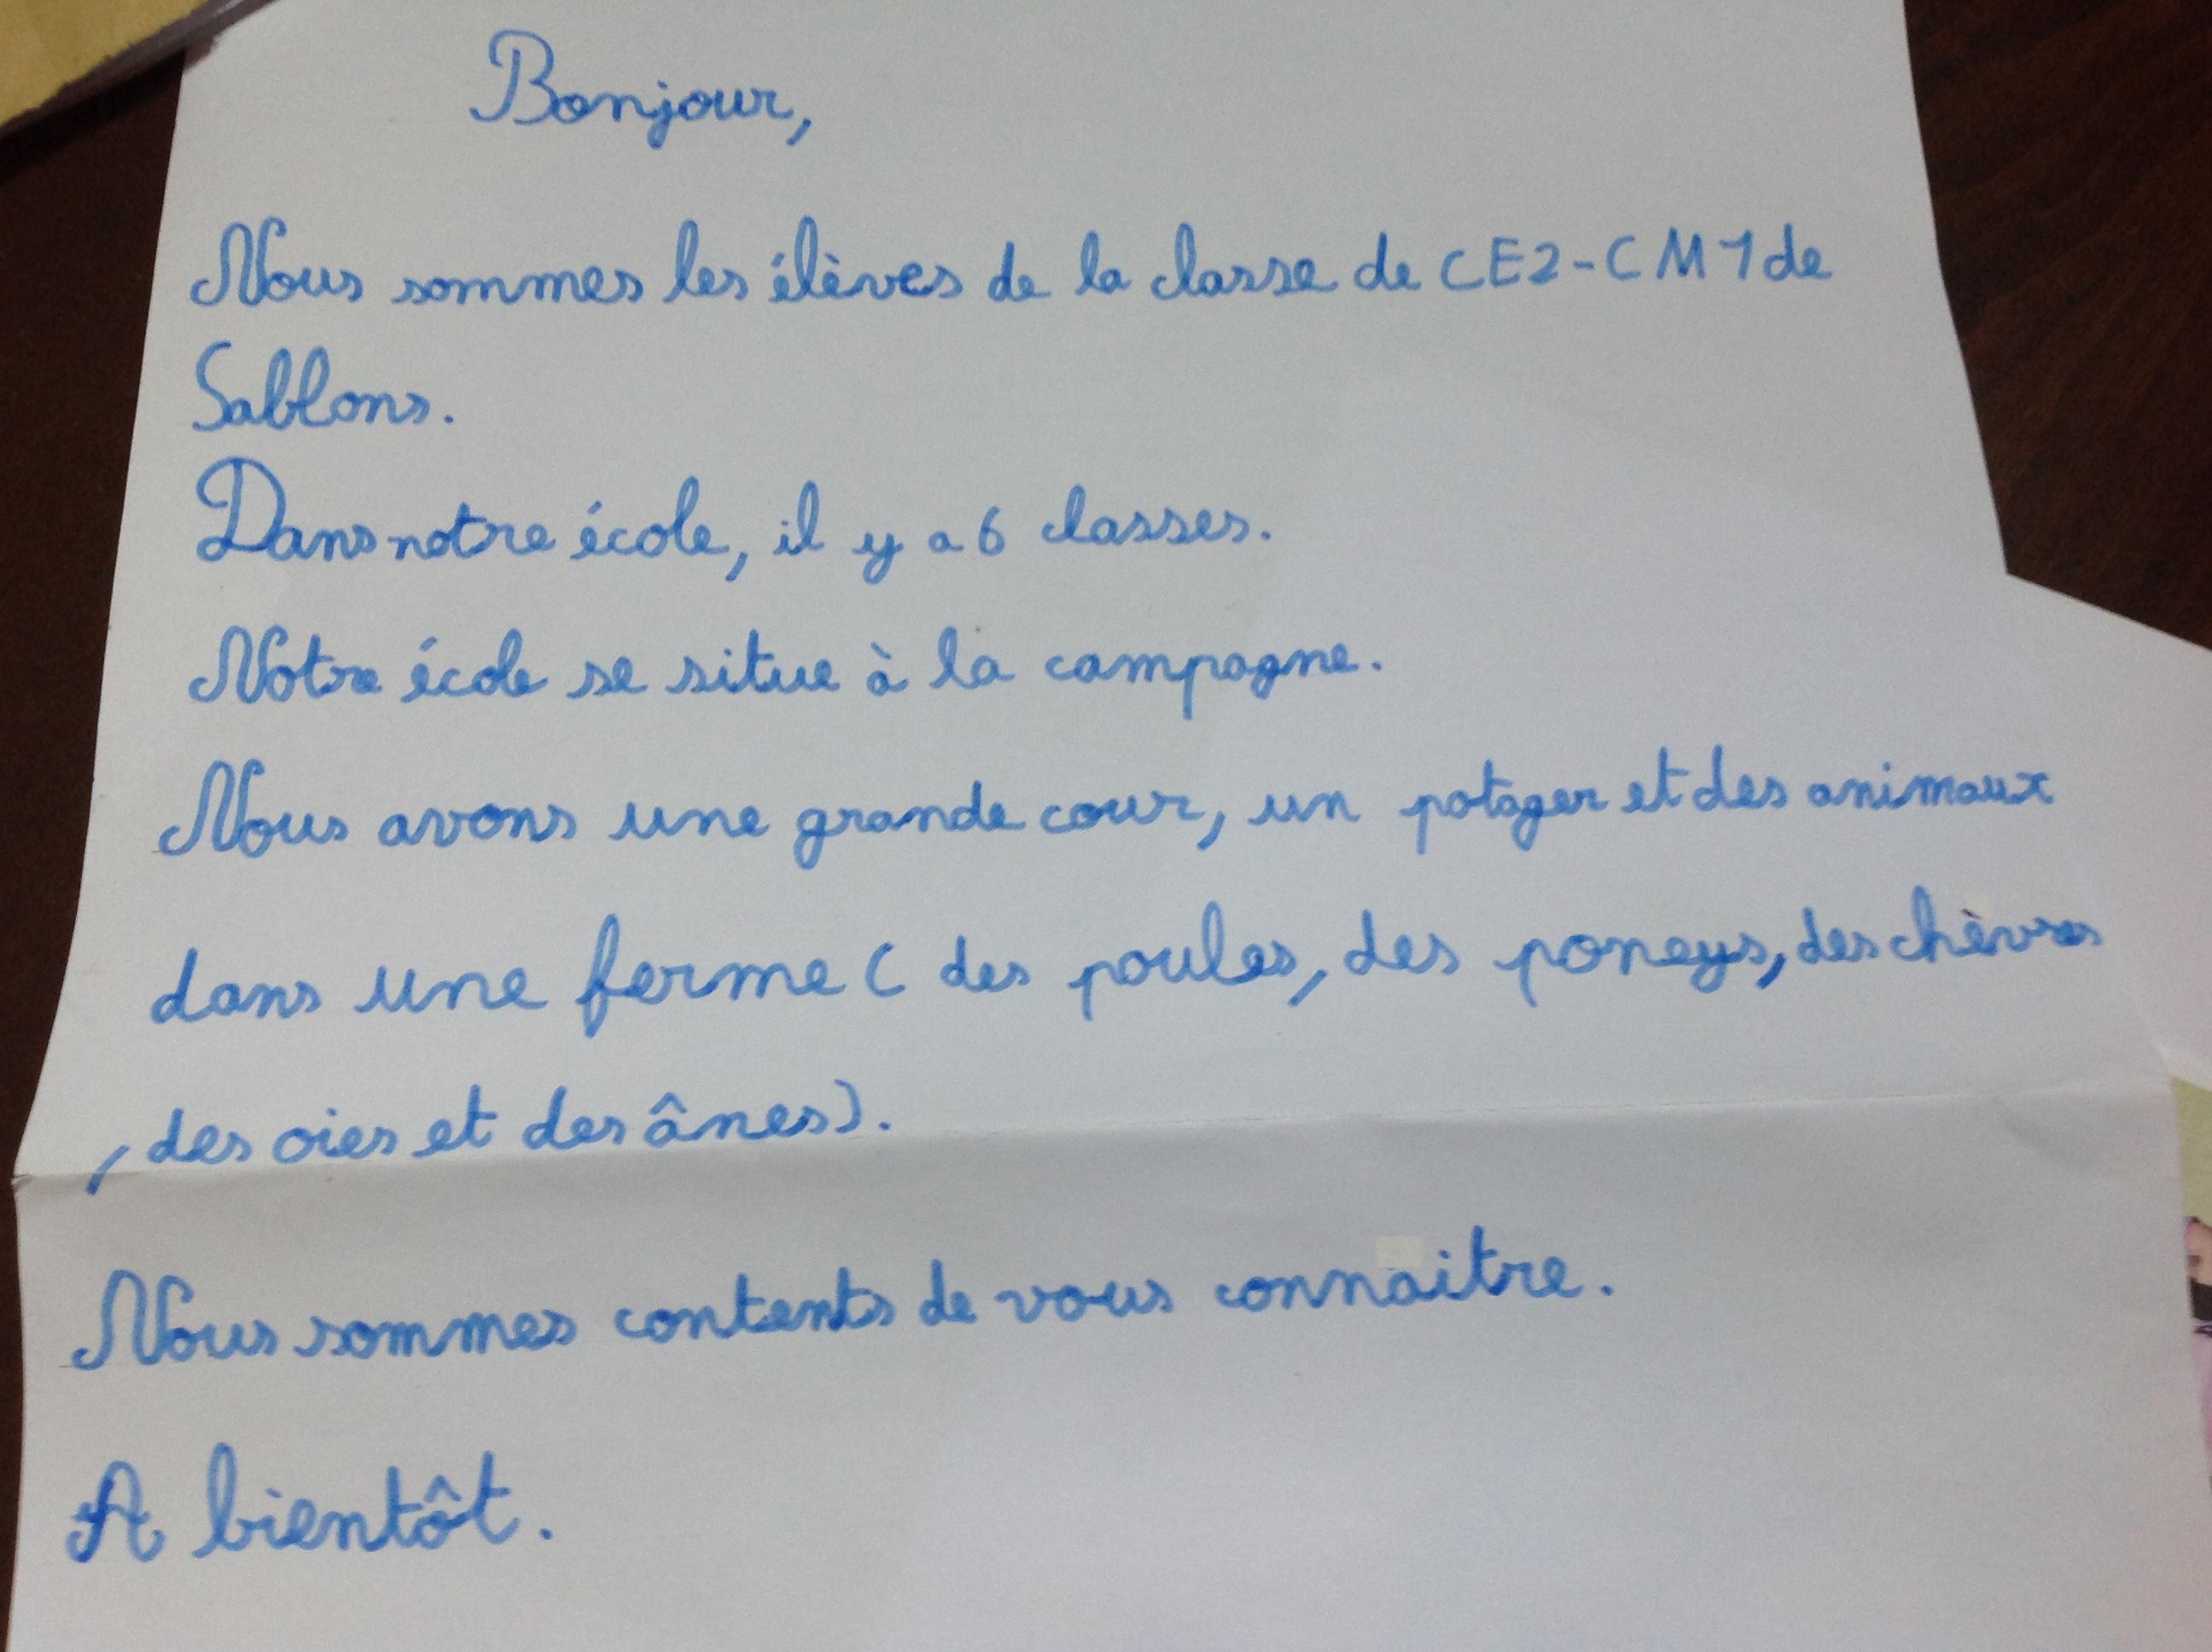 Bonjour,
Nous sommes les élèves de la classe de CE2-CM1 de
Sablons.
Dans notre école, il y a 6 classes.
Notre école se situe à la campagne.
Nous avons une grande cour, un potager et des animaux
dans une ferme ( des poules, des poneys, des chèvres
, des oies et des ânes).
Nous sommes contents de vous connaitre.
A bientôt.